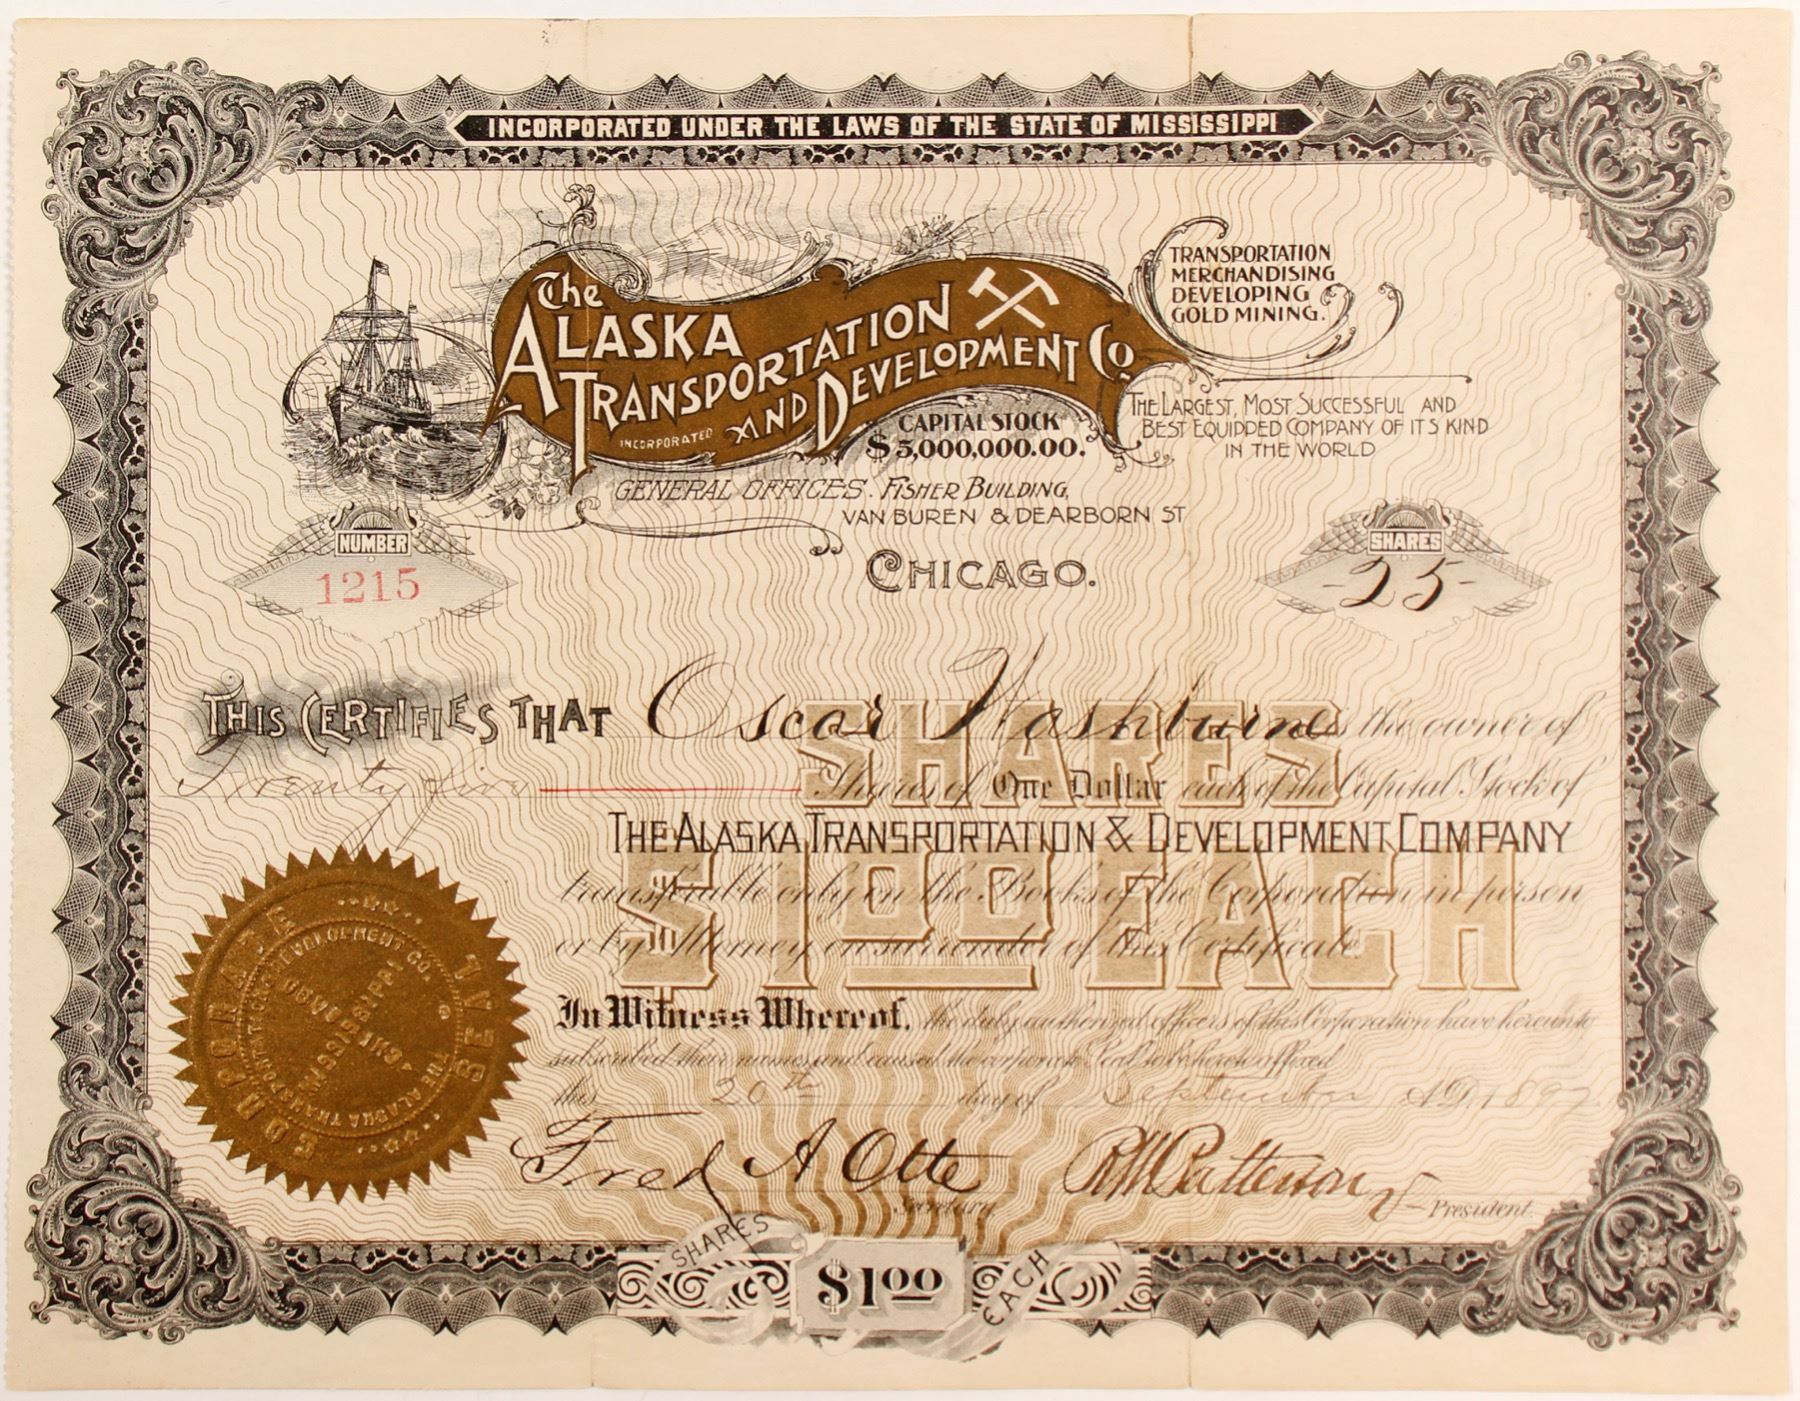 INCORPORATED UNDER THE LAWS OF THE STATE OF MISSISSIPPI
The
ALASKA
TRANSPORTATION
INCORPORATED AND DEVELOPMENT CO
TRANSPORTATION
MERCHANDISING
DEVELOPING
GOLD MINING.
CAPITAL STOCK
$5,000,000.00.
THE LARGEST, MOST SUCCESSFUL AND
BEST EQUIPPED COMPANY OF ITS KIND
IN THE WORLD
GENERAL OFFICES. FISHER BUILDING,
VAN BUREN & DEARBORN ST
CHICAGO.
NUMBER
1215
SHARES
-25-
THIS CERTIFIES THAT Oscar Washburne is the owner of
Twenty five Shares of One Dollar each of the Capital Stock of
THE ALASKA TRANSPORTATION & DEVELOPMENT COMPANY
transferable only on the Books of the Corporation in person
or by Attorney on surrender of this Certificate.
SHARES
$100 EACH
In Witness Whereof, the duly authorized officers of this Corporation have hereunto
subscribed their names and caused the corporate Seal to be hereto affixed
this 20th day of September A.D. 1897
Fred A Otte
Secretary
R W Patterson Jr
President.
CORPORATE SEAL
THE ALASKA TRANSPORTATION & DEVELOPMENT CO.
CHICAGO
MISSISSIPPI
SHARES
$100
EACH